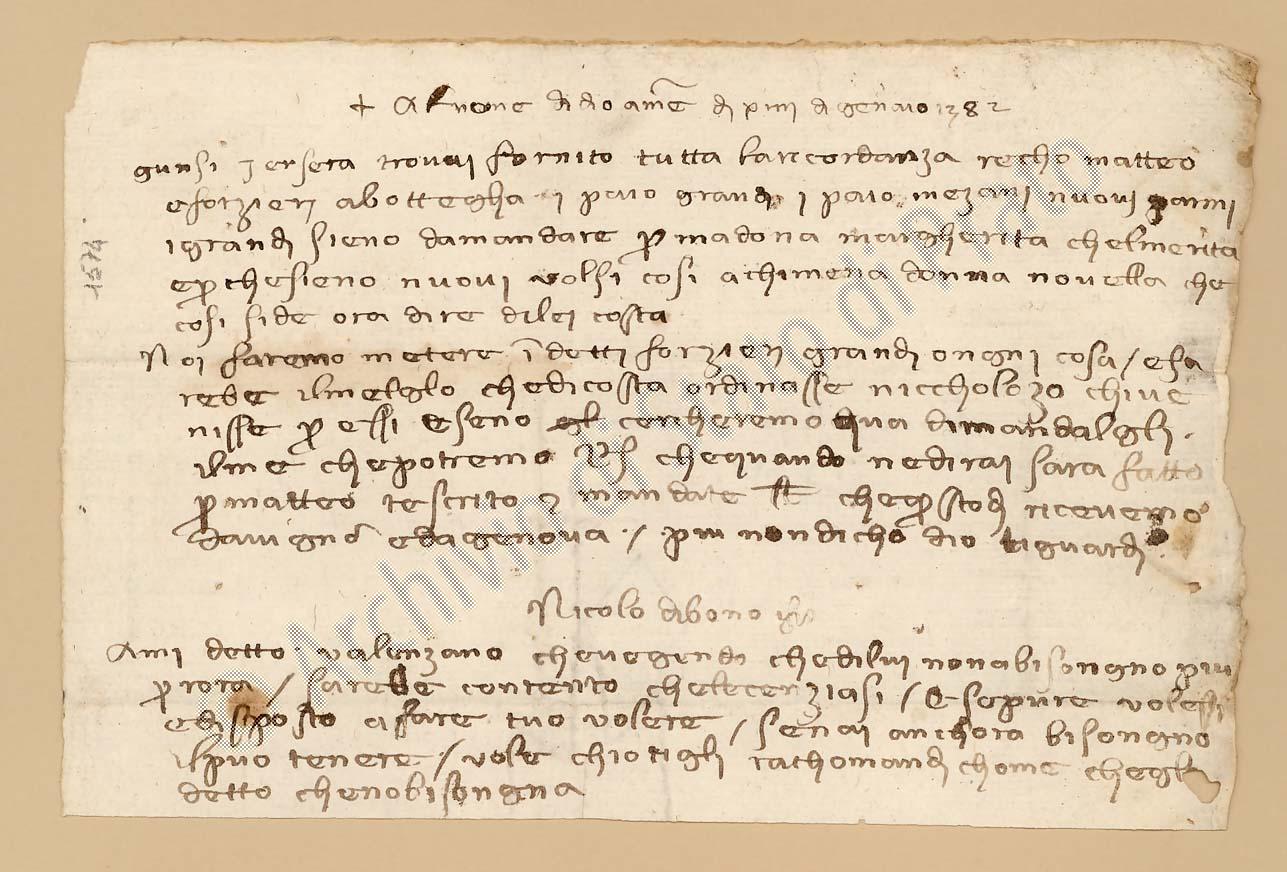 + Al nome di dio amē di xiiii di gēnaio 1382
gunsi jersera trovai fornito tutta larecordanza recho matteo
e forzieri abottegha i paio grandi i paio mezani nuovi parmi
i grandi sieno damandare p madona margherita chelmerita
e p chesieno nuovi volsi cosi achimena donna novella che
cosi side ora dire dilei costa
Noi faremo metere ī detti forzieri grandi ongni cosa / e sa
rebe ilmelglo chedicosta ordinasse niccholozo chive
nisse p essi e seno cercheremo qua dimandalgli
ilme chepotremo chequando nedirai sara fatto
p matteo tescrito mandate che pstodi ricevemo
davignō e dagenova / piu nondicho dio tiguardi
Nicolo dibono
Ami detto valenzano chevegendo chedilui nonabisongno piu
p rora / sarebe contento chelecenziasi / e sepure volessi
edisposto afare tuo volere / senai anchora bisongno
ilpuo tenere / vole chiotigli rachomandi chome chegli
detto chenobisongna
1574
© Archivio di Stato di Prato